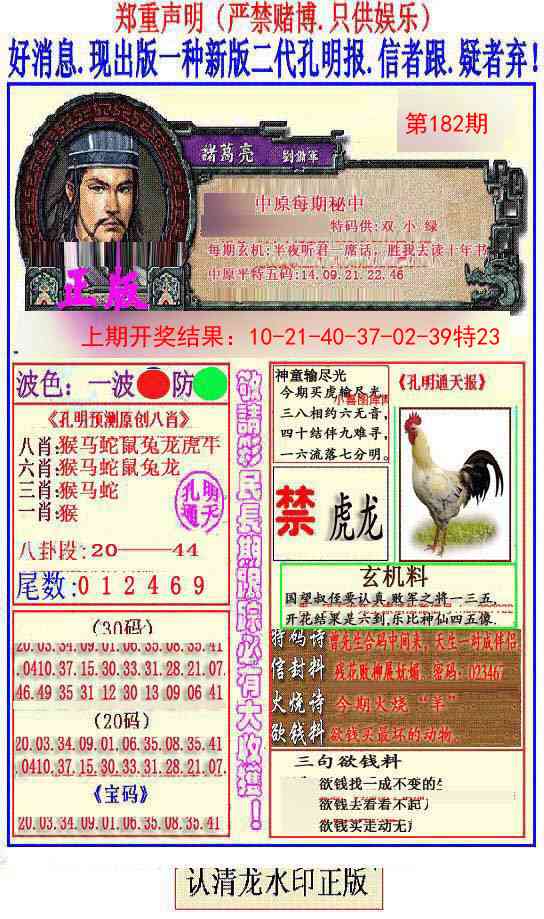 郑重声明（严禁赌博.只供娱乐）
好消息.现出版一种新版二代孔明报.信者跟.疑者弃!
第182期
諸葛亮 劉備軍
中原每期秘中
特码供:双 小 绿
每期玄机:半夜听君一席话，胜我去读十年书
中原平特五码:14.09.21.22.46
正版
上期开奖结果：10-21-40-37-02-39特23
波色：一波 防
《孔明预测原创八肖》
八肖:猴马蛇鼠兔龙虎牛
六肖:猴马蛇鼠兔龙
三肖:猴马蛇
一肖:猴
孔明
通天
八卦段:20——44
尾数:0 1 2 4 6 9
(30码)
20.03.34.09.01.06.35.08.35.41
.0410.37.15.30.33.31.28.21.07.
46.49 35 31 12 30 13 09 06 41
(20码)
20.03.34.09.01.06.35.08.35.41
.0410.37.15.30.33.31.28.21.07.
《宝码》
20.03.34.09.01.06.35.08.35.41
敬請彩民長期跟踪必有大收獲！
神童输尽光
今期买虎输尽光
三八相约六无音,
四十结伴九难寻,
一六流落七分明。
《孔明通天报》
禁 虎龙
玄机料
国望叔侄要认真,败军之将一三五,
开花结果是六到,乐比神仙四五像.
特码诗 曾先生合码中间来，天生一对成伴侣
信封料 残花败柳展妩媚。密码：023467
火烧诗 今期火烧“羊”
欲钱料 欲钱买最坏的动物。
三句欲钱料
欲钱找一成不变的生
欲钱去看看不起
欲钱买走动无
认清龙水印正版